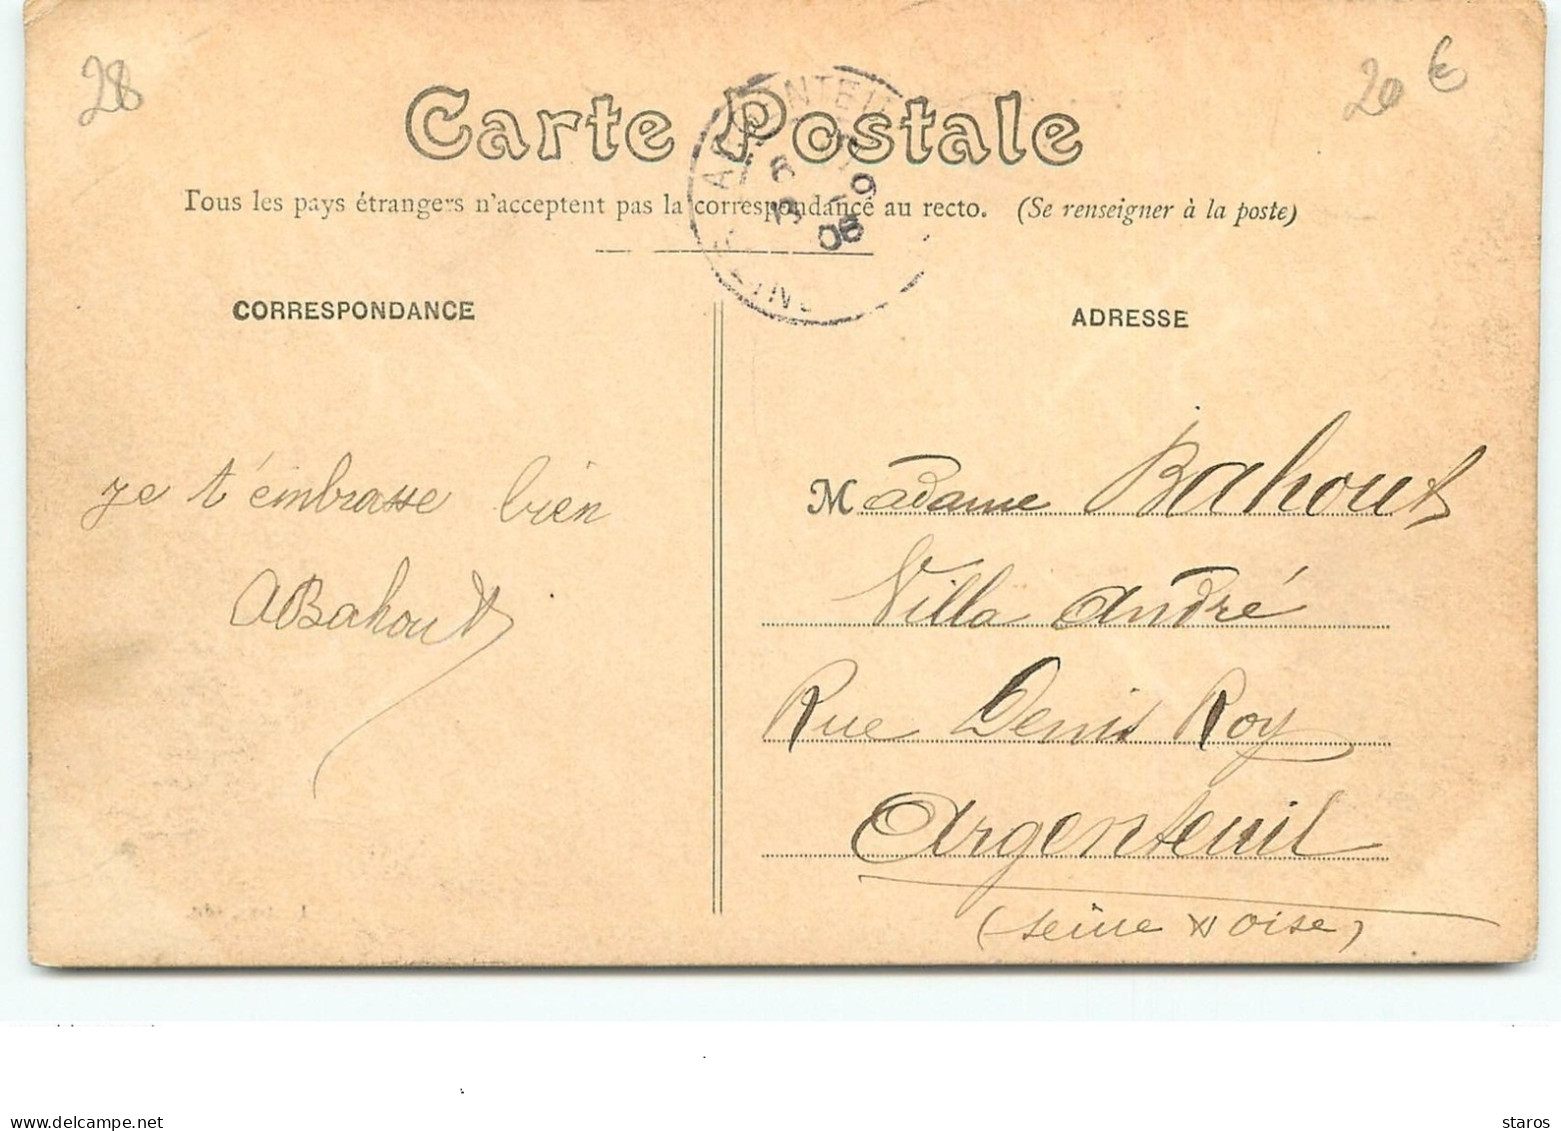 28
20 €
Carte Postale
Tous les pays étrangers n'acceptent pas la correspondance au recto. (Se renseigner à la poste)
ARGENTEUIL
06
CORRESPONDANCE
ADRESSE
je t'embrasse bien
ABahout
Madame Bahout
Villa André
Rue Denis Roy
Argenteuil
(Seine & Oise)
www.delcampe.net
staros